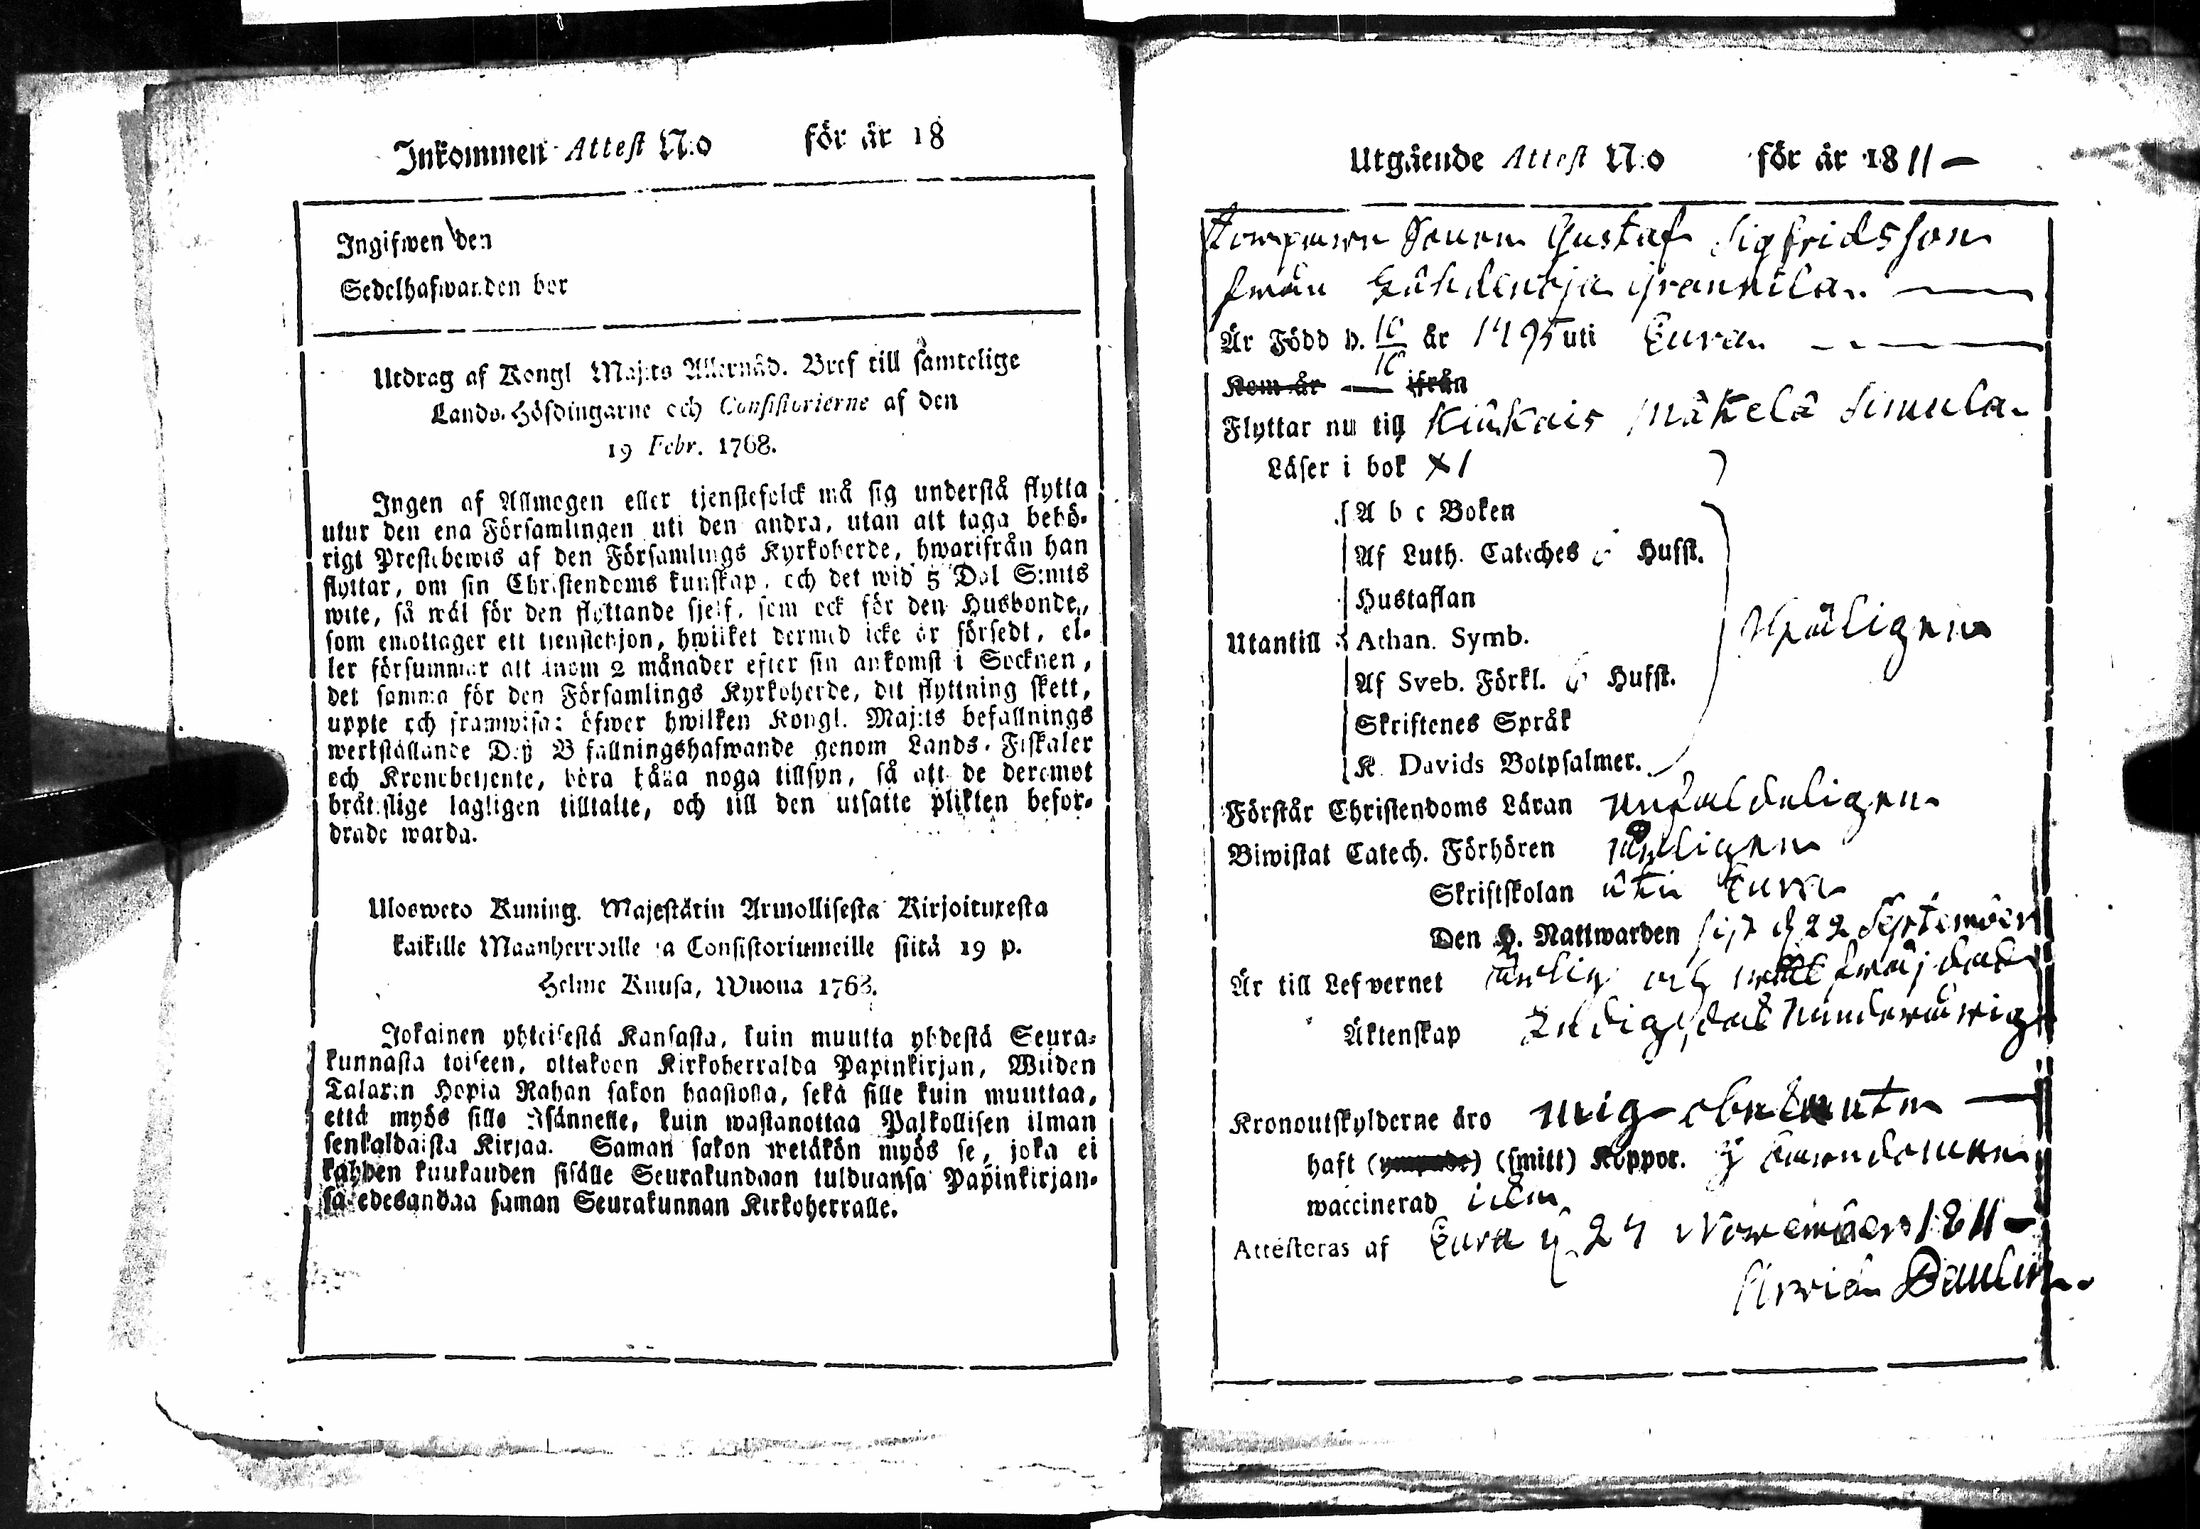 Inkommen Attest N:o för år 18
Ingifwen den
Sedelhafwanden ber
Utdrag af Kongl Maj:ts Allernåd. Bref till samtelige
Lands-Höfdingarne och Consistorierne af den
19 Febr. 1768.
Ingen af Allmogen eller tjenstefolck må sig understå flytta
utur den ena Församlingen uti den andra, utan att taga behö-
rigt Prestebewis af den Församlings Kyrkoherde, hwarifrån han
flyttar, om sin Christendoms kunskap, och det wid 5 Dal S:mts
wite, så wäl för den flyttande sjelf, som ock för den Husbonde,
som emottager ett tienstehjon, hwilket dermed icke är försedt, el-
ler försummar att inom 2 månader efter sin ankomst i Socknen,
det samma för den Församlings Kyrkoherde, dit flyttning skett,
uppte och framwisa: öfwer hwilken Kongl. Maj:ts befallnings
werkställande Deß Befallningshafwande genom Lands-Fiskaler
och Kronobetjente, böra håla noga tillsyn, så att de deremot
bråtslige lagligen tilltalte, och till den utsatte plikten befor-
drade warda.
Ulosweto Kuning. Majestätin Armollisesta Kirjoituxesta
kaikille Maanherroille ja Consistoriumeille siitä 19 p.
Helme Kuusa, Wuona 1768.
Jokainen yhteisestä Kansasta, kuin muutta yhdestä Seura-
kunnasta toiseen, ottakoon Kirkoherralda Papinkirjan, Wiiden
Talarin Hopia Rahan sakon haastolla, sekä sille kuin muuttaa,
että myös sille Isännelle, kuin wastanottaa Palkollisen ilman
senkaldaista Kirjaa. Saman sakon wetäkön myös se, joka ei
kahden kuukauden sisälle Seurakundaan tulduansa Papinkirjan-
sa edesandaa saman Seurakunnan Kirkoherralle.
Utgående Attest N:o för år 1811 —
Sonen Gustaf Sigfridsson
från Grannila.
Är Född d. 10/10 år 1795 uti Eura.
Kom år — ifrån
Flyttar nu till Kiukais Mäkelä Simula.
Läser i bok x1
A b c Boken
Af Luth. Cateches 6 Hufst.
Hustaflan
Utantill Athan. Symb.
Af Sveb. Förkl. 6 Hufst.
Skriftenes Språk
K. Davids Botpsalmer.
Förstår Christendoms Läran enfaldeligen
Biwistat Catech. Förhören årligen
Skriftskolan uti Eura
Den H. Nattwarden sist d 22 September
Är till Lefvernet ärlig och wäl frejdad
Äktenskap Ledig,
Kronoutskylderne äro mig obekante —
haft (ympade) (smitt) Koppor. i barndomen
waccinerad
Attesteras af Eura d. 27 November 1811 —
Paulin.